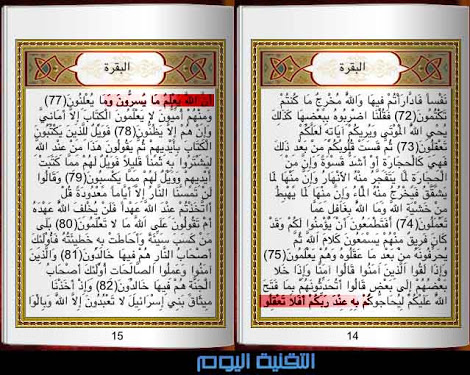 البقرة
نَفْساً فَادَّارَأْتُمْ فِيهَا وَاللَّهُ مُخْرِجٌ مَا كُنْتُمْ
تَكْتُمُونَ(72) فَقُلْنَا اضْرِبُوهُ بِبَعْضِهَا كَذَلِكَ
يُحْيِي اللَّهُ الْمَوْتَى وَيُرِيكُمْ آيَاتِهِ لَعَلَّكُمْ
تَعْقِلُونَ(73) ثُمَّ قَسَتْ قُلُوبُكُمْ مِنْ بَعْدِ ذَلِكَ
فَهِيَ كَالْحِجَارَةِ أَوْ أَشَدُّ قَسْوَةً وَإِنَّ مِنَ
الْحِجَارَةِ لَمَا يَتَفَجَّرُ مِنْهُ الأَنْهَارُ وَإِنَّ مِنْهَا لَمَا
يَشَّقَّقُ فَيَخْرُجُ مِنْهُ الْمَاءُ وَإِنَّ مِنْهَا لَمَا يَهْبِطُ
مِنْ خَشْيَةِ اللَّهِ وَمَا اللَّهُ بِغَافِلٍ عَمَّا
تَعْمَلُونَ(74) أَفَتَطْمَعُونَ أَنْ يُؤْمِنُوا لَكُمْ وَقَدْ
كَانَ فَرِيقٌ مِنْهُمْ يَسْمَعُونَ كَلامَ اللَّهِ ثُمَّ
يُحَرِّفُونَهُ مِنْ بَعْدِ مَا عَقَلُوهُ وَهُمْ يَعْلَمُونَ(75)
وَإِذَا لَقُوا الَّذِينَ آمَنُوا قَالُوا آمَنَّا وَإِذَا خَلا
بَعْضُهُمْ إِلَى بَعْضٍ قَالُوا أَتُحَدِّثُونَهُمْ بِمَا فَتَحَ
اللَّهُ عَلَيْكُمْ لِيُحَاجُّوكُمْ بِهِ عِنْدَ رَبِّكُمْ أَفَلا تَعْقِلُو
14
البقرة
أَنَّ اللَّهَ يَعْلَمُ مَا يُسِرُّونَ وَمَا يُعْلِنُونَ(77)
وَمِنْهُمْ أُمِّيُّونَ لا يَعْلَمُونَ الْكِتَابَ إِلا أَمَانِيَّ
وَإِنْ هُمْ إِلا يَظُنُّونَ(78) فَوَيْلٌ لِلَّذِينَ يَكْتُبُونَ
الْكِتَابَ بِأَيْدِيهِمْ ثُمَّ يَقُولُونَ هَذَا مِنْ عِنْدِ اللَّهِ
لِيَشْتَرُوا بِهِ ثَمَناً قَلِيلاً فَوَيْلٌ لَهُمْ مِمَّا كَتَبَتْ
أَيْدِيهِمْ وَوَيْلٌ لَهُمْ مِمَّا يَكْسِبُونَ(79) وَقَالُوا
لَنْ تَمَسَّنَا النَّارُ إِلا أَيَّاماً مَعْدُودَةً قُلْ
أَتَّخَذْتُمْ عِنْدَ اللَّهِ عَهْداً فَلَنْ يُخْلِفَ اللَّهُ عَهْدَهُ
أَمْ تَقُولُونَ عَلَى اللَّهِ مَا لا تَعْلَمُونَ(80) بَلَى
مَنْ كَسَبَ سَيِّئَةً وَأَحَاطَتْ بِهِ خَطِيئَتُهُ فَأُوْلَئِكَ
أَصْحَابُ النَّارِ هُمْ فِيهَا خَالِدُونَ(81) وَالَّذِينَ
آمَنُوا وَعَمِلُوا الصَّالِحَاتِ أُوْلَئِكَ أَصْحَابُ
الْجَنَّةِ هُمْ فِيهَا خَالِدُونَ(82) وَإِذْ أَخَذْنَا
مِيثَاقَ بَنِي إِسْرَائِيلَ لا تَعْبُدُونَ إِلاَّ اللَّهَ وَبِالْوَا
15
التقنية اليوم